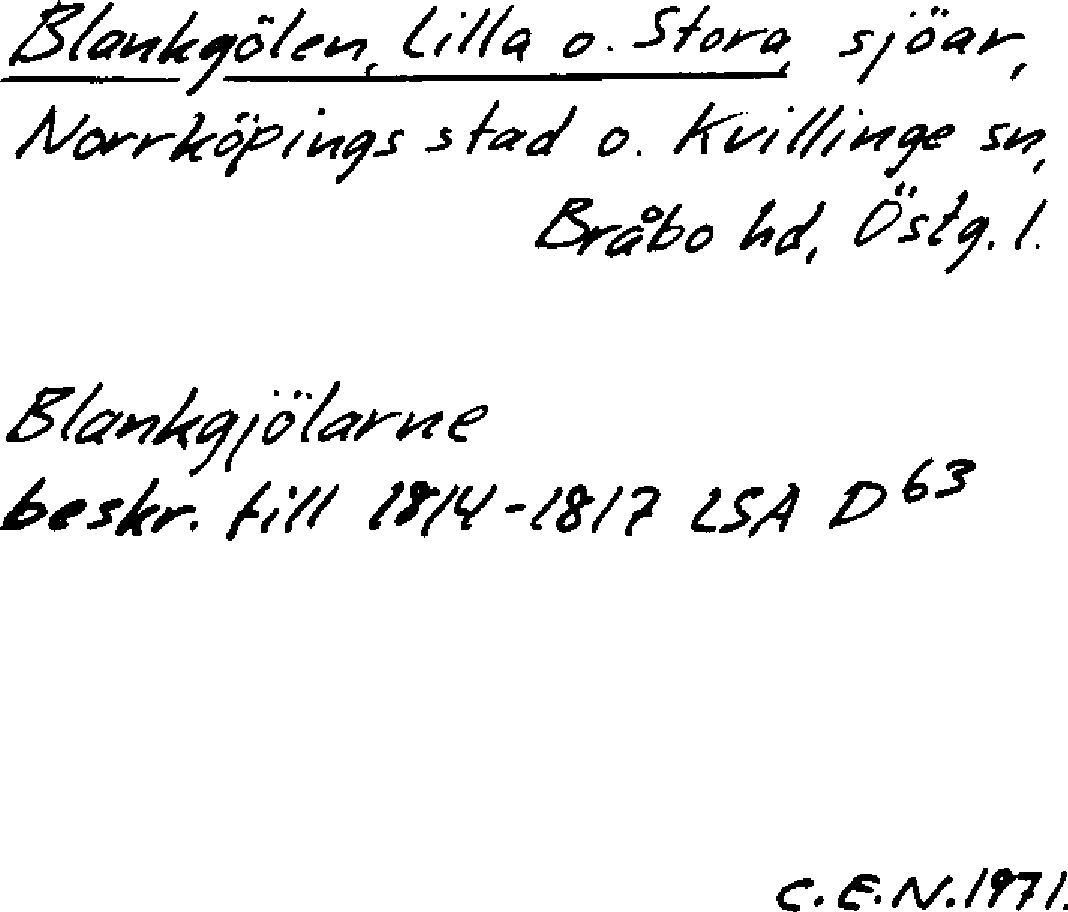 Blankgölen, Lilla o. Stora, sjöar,
Norrköpings stad o. Kvillinge sn,
Bråbo hd, Östg. l.
Blankgjölarne
beskr. till 1814-1817 LSA D63
C.E.N. 1971.